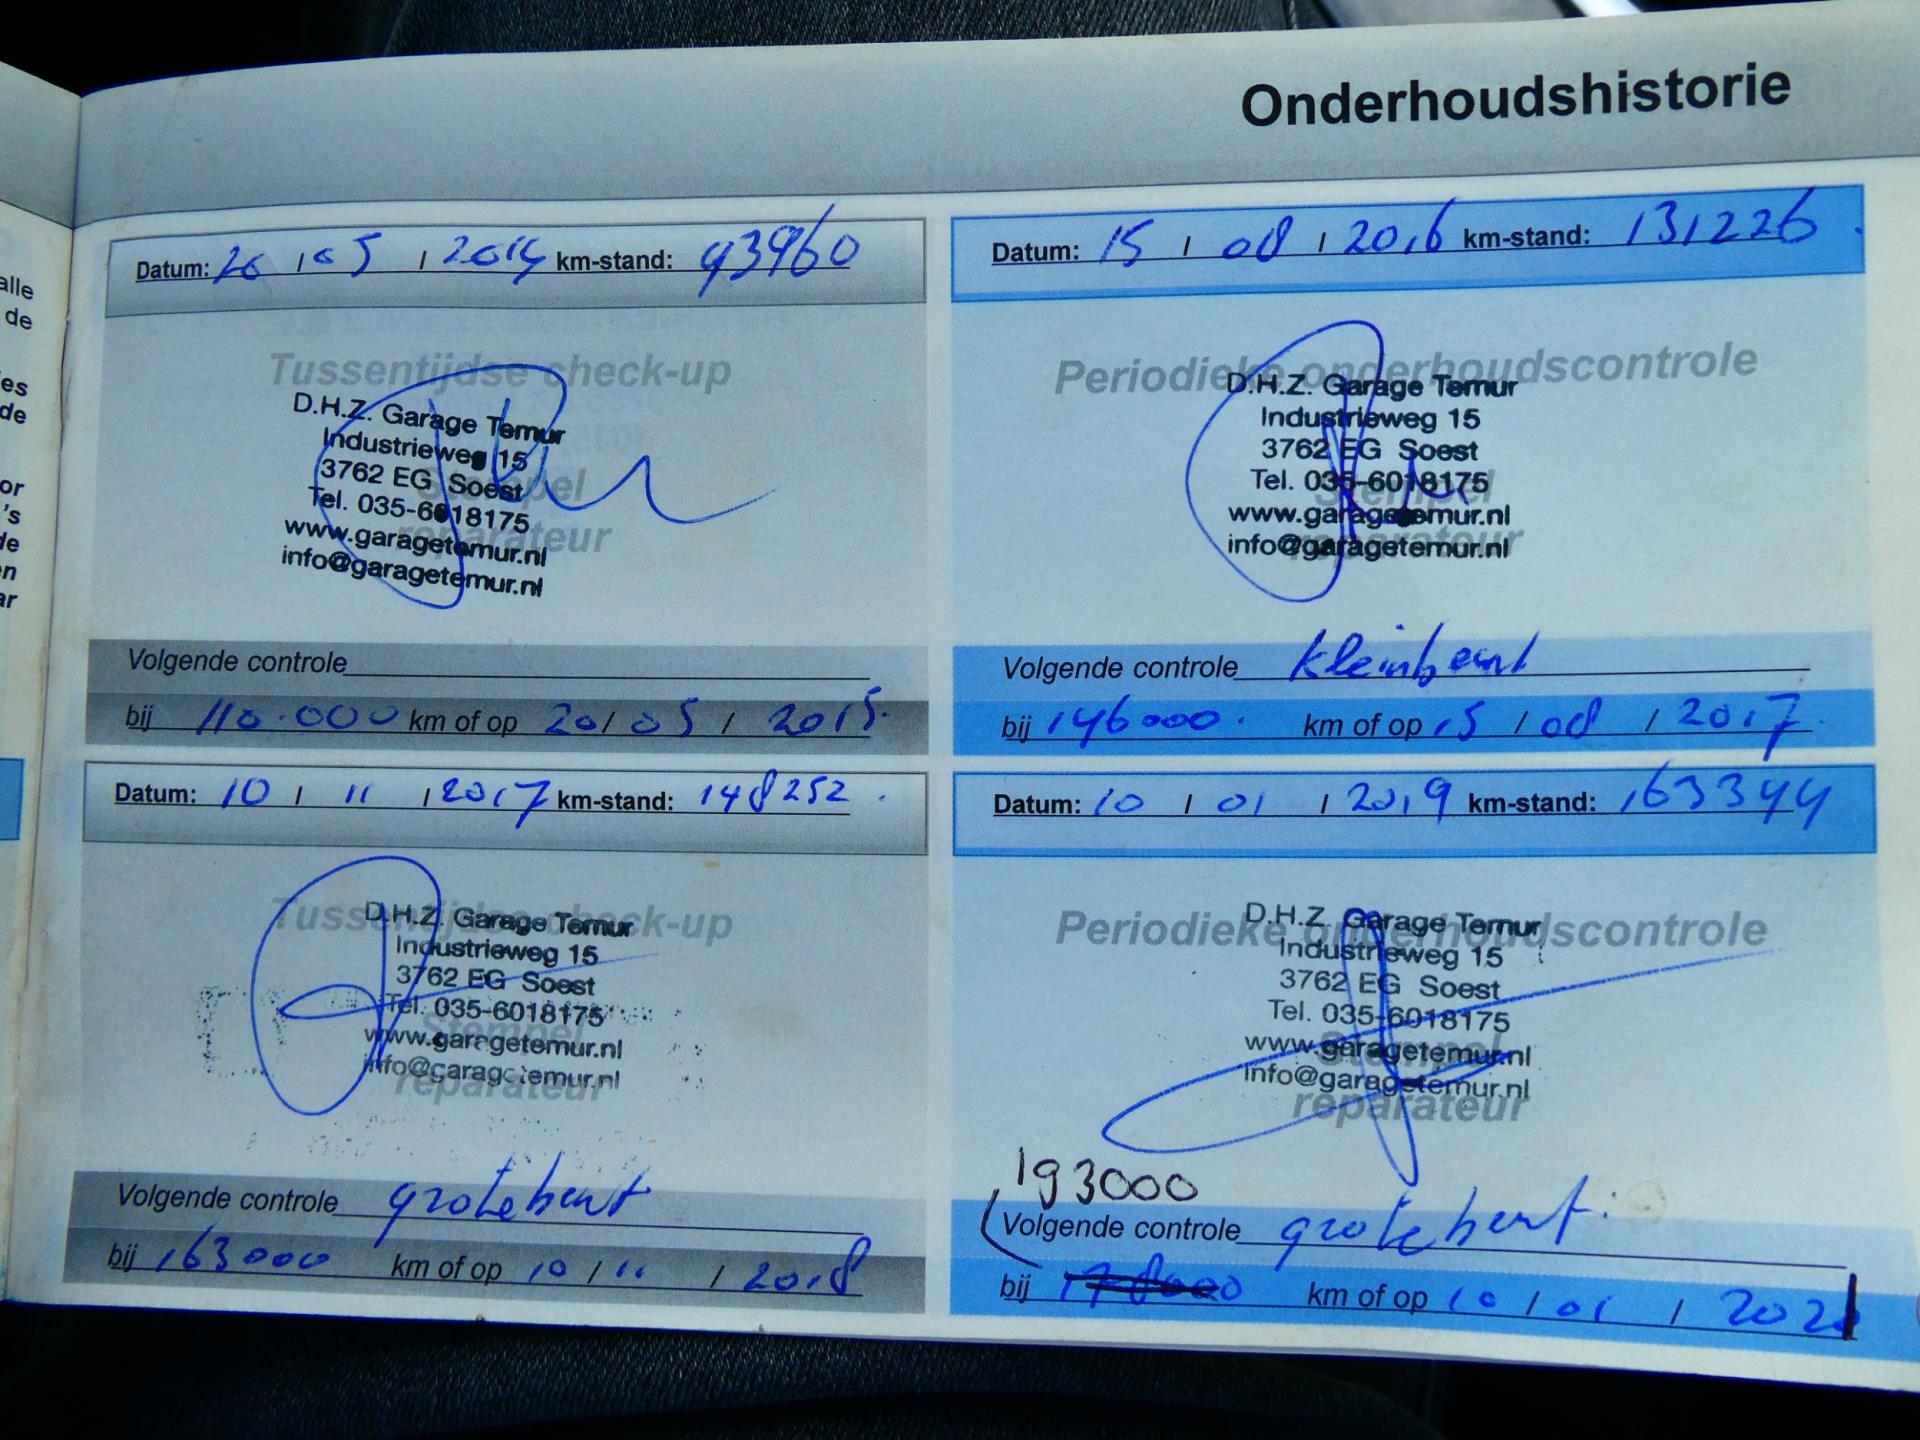 Onderhoudshistorie
alle
de
es
de
or
's
de
en
ar
Datum: 20 / 05 / 2014 km-stand: 93960
Tussentijdse check-up
D.H.Z. Garage Temur
Industrieweg 15
3762 EG Soest
Tel. 035-6018175
www.garagetemur.nl
info@garagetemur.nl
Stempel
reparateur
Volgende controle
bij 110.000 km of op 20 / 05 / 2015.
Datum: 15 / 08 / 2016 km-stand: 131226
Periodieke onderhoudscontrole
D.H.Z. Garage Temur
Industrieweg 15
3762 EG Soest
Tel. 035-6018175
www.garagetemur.nl
info@garagetemur.nl
Stempel
reparateur
Volgende controle kleinbeurt
bij 146000. km of op 15 / 08 / 2017.
Datum: 10 / 11 / 2017 km-stand: 148252.
Tussentijdse check-up
D.H.Z. Garage Temur
Industrieweg 15
3762 EG Soest
Tel. 035-6018175
www.garagetemur.nl
info@garagetemur.nl
Stempel
reparateur
Volgende controle grotebeurt
bij 163000 km of op 10 / 11 / 2018
Datum: 10 / 01 / 2019 km-stand: 163344
Periodieke onderhoudscontrole
D.H.Z. Garage Temur
Industrieweg 15
3762 EG Soest
Tel. 035-6018175
www.garagetemur.nl
info@garagetemur.nl
Stempel
reparateur
193000
Volgende controle grotebeurt.
bij 178000 km of op 10 / 01 / 2021